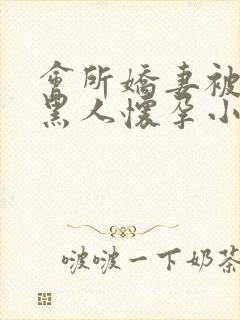 會所嬌妻被
黑人懷孕小
啵啵一下奶茶